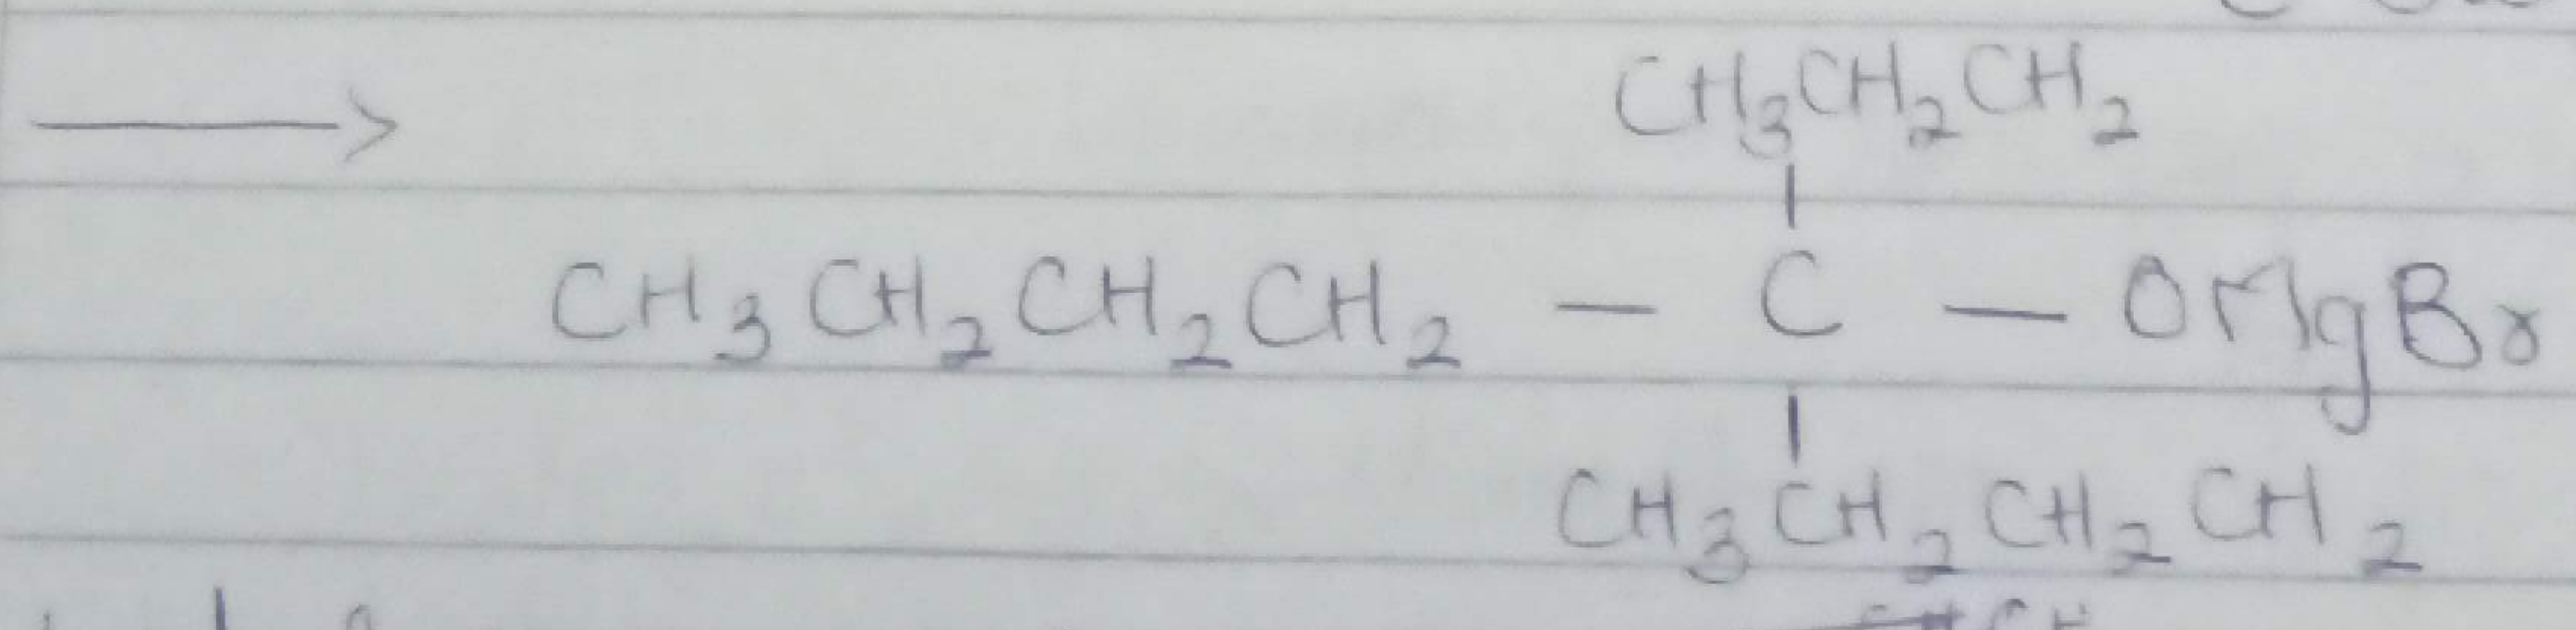 ⟶ CH₃CH₂CH₂
|
CH₃CH₂CH₂CH₂ — C — OMgBr
|
CH₃CH₂CH₂CH₂